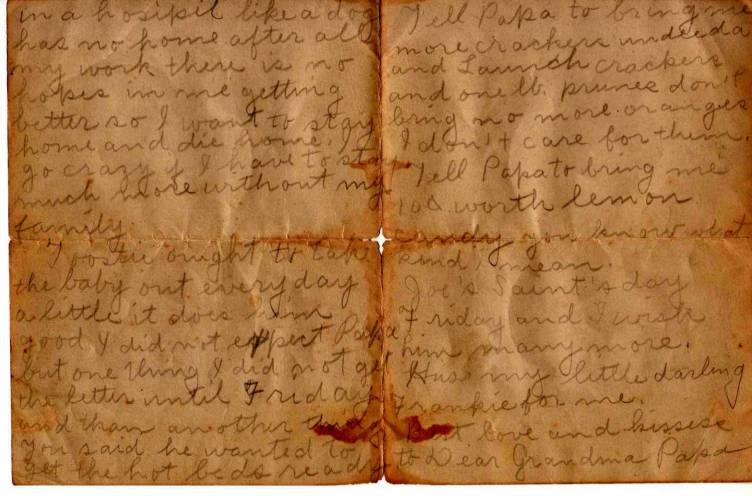 in a hosipil like a dog
has no home after all
my work there is no
hopes in me getting
better so I want to stay
home and die home. I'll
go crazy if I have to stay
much more without my
family.
Tootsie ought to take
the baby out everyday
a little it does him
good I did not expect Papa
but one thing I did not get
the letter until Friday
and than another thing
you said he wanted to
get the hot beds ready
Tell Papa to bring me
more crackers
and Launch crackers
and one lb. prunes don't
bring no more oranges
I don't care for them.
Tell Papa to bring me
10¢ worth lemon
candy you know what
kind I mean.
Joe's Saint's day
Friday and I wish
him many more.
Hug my little darling
Frankie for me.
But love and kisses
to Dear Grandma Papa